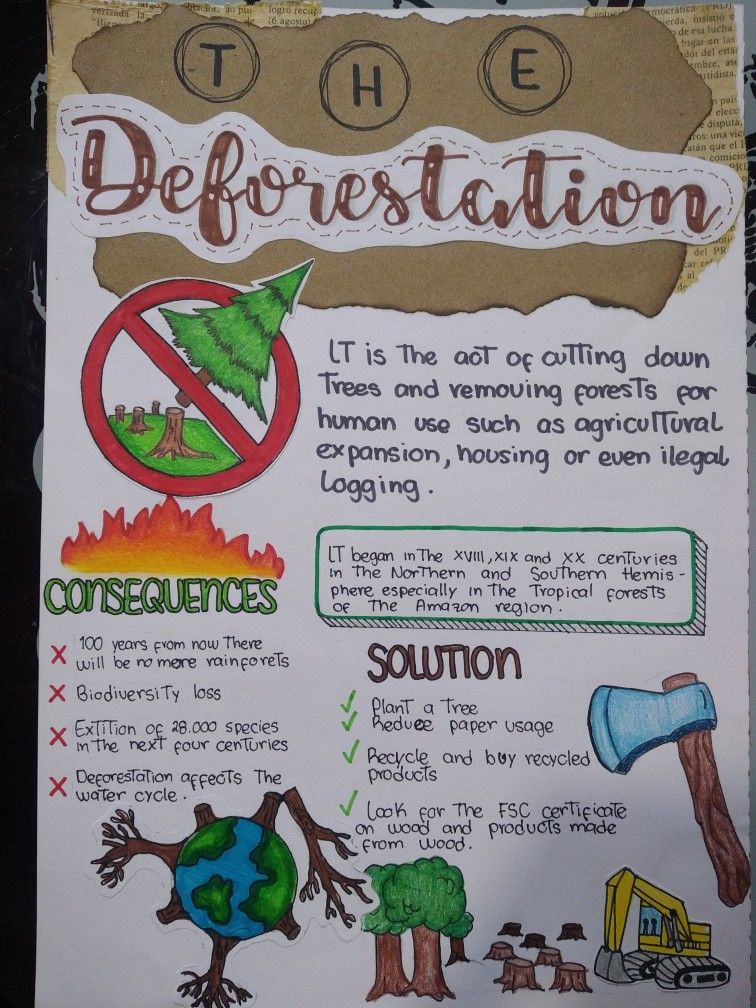 verizada la
logró recup
(6 agosto)
T H E
Deforestation
LT is the act of cutting down
Trees and removing forests for
human use such as agricultural
expansion, housing or even ilegal
Logging.
LT began in The XVIII, XIX and XX centuries
in The Northern and Southern Hemis-
phere especially in The Tropical forests
of The Amazon region.
CONSEQUENCES
X 100 years from now There
will be no more rainforets
X Biodiversity loss
X Extition of 28.000 species
in the next four centuries
X Deforestation affects The
water cycle.
SOLUTION
✓ Plant a Tree
✓ Reduce paper usage
✓ Recycle and buy recycled
products
✓ Look for The FSC certificate
on wood and products made
from wood.